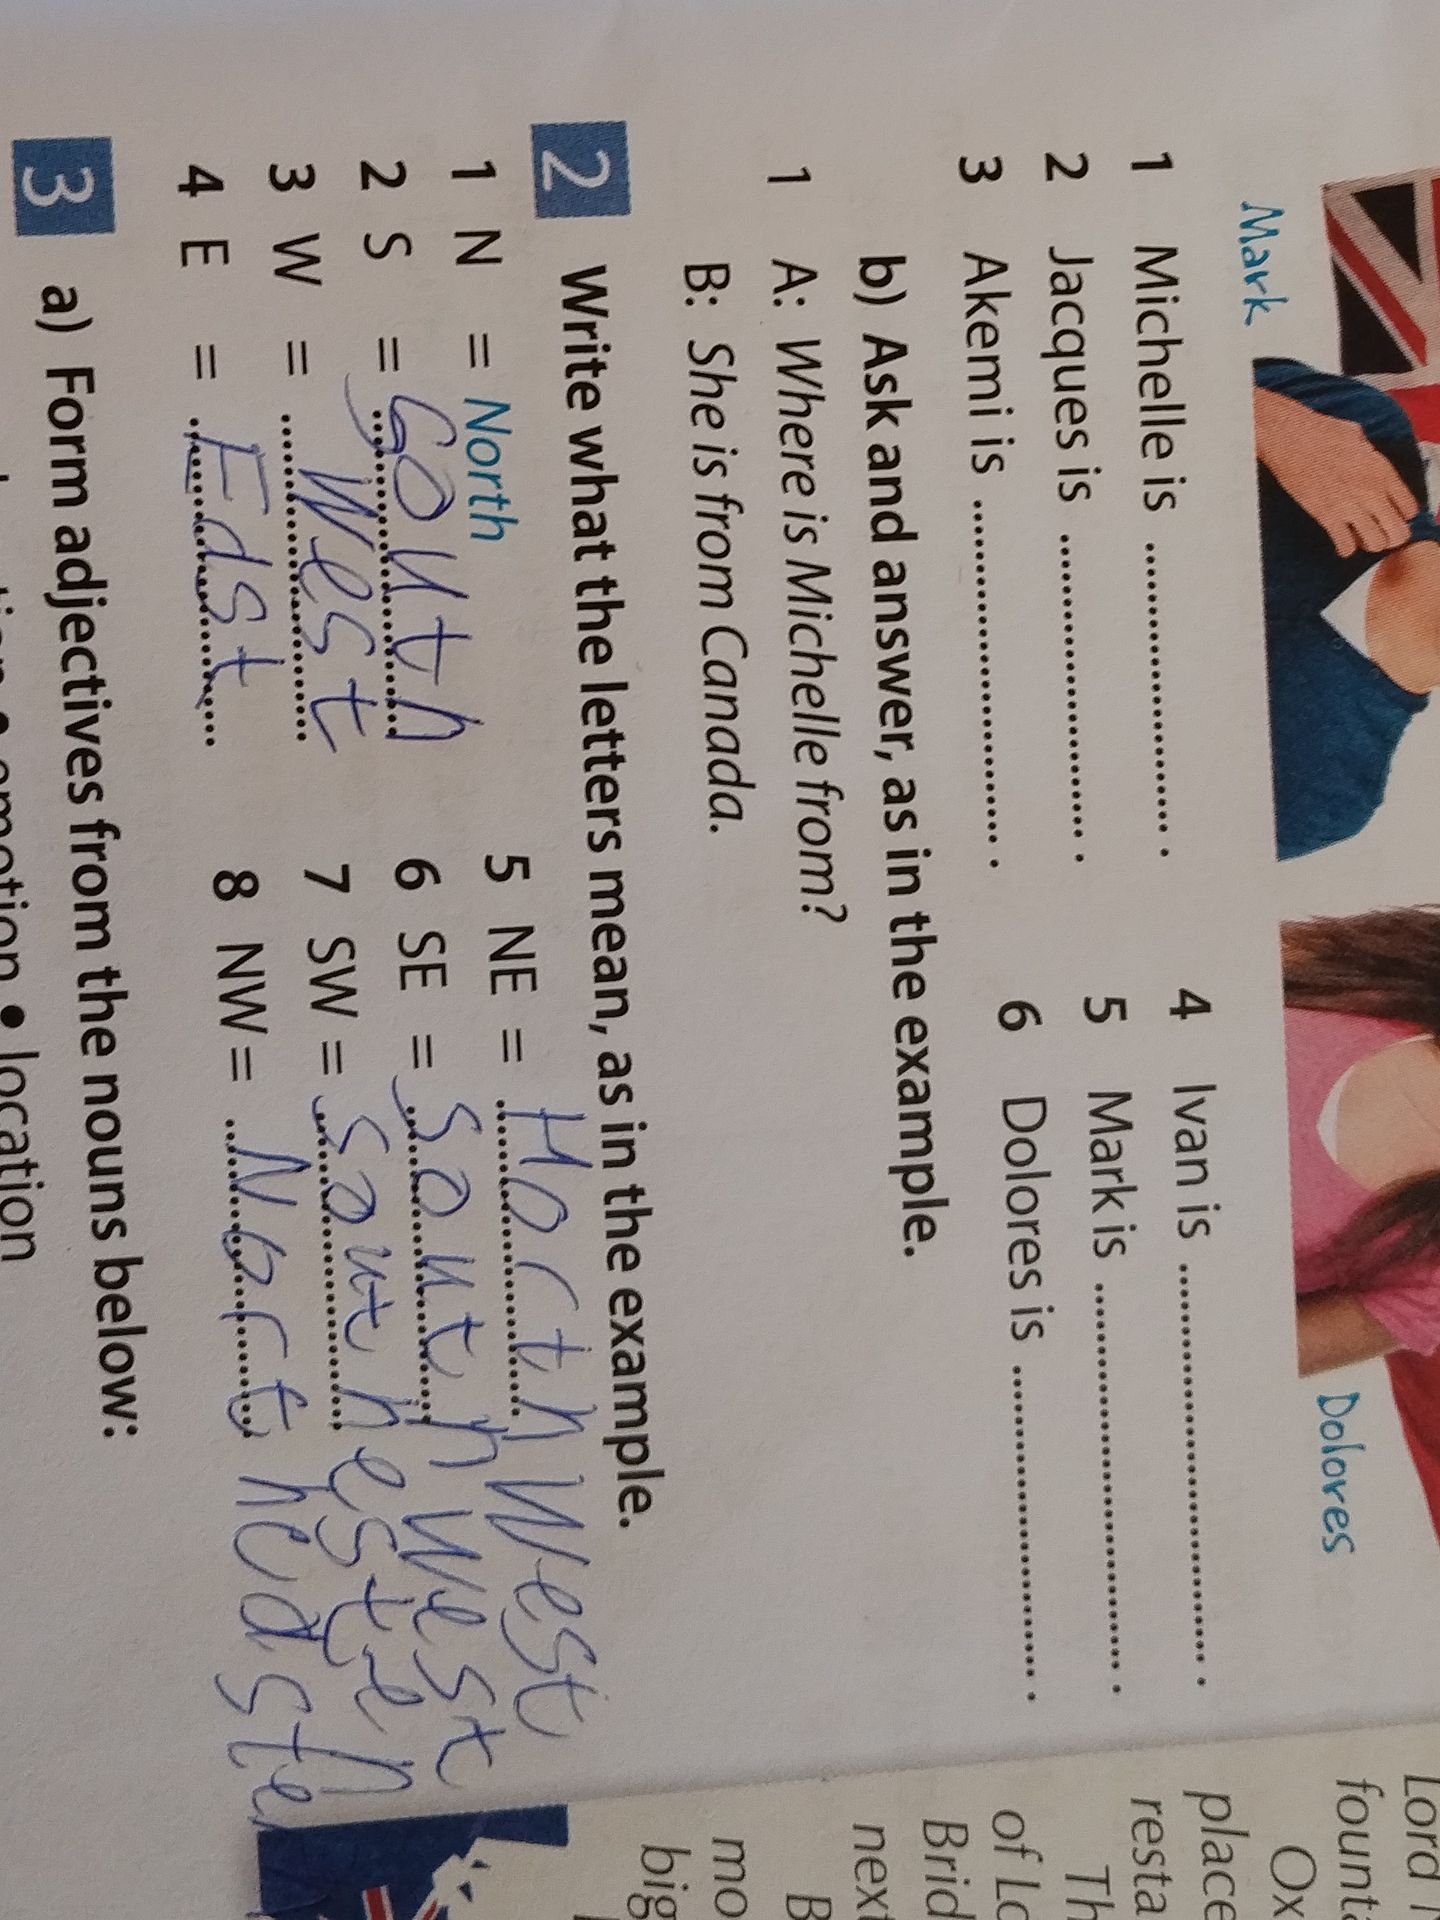 Mark
Dolores
1 Michelle is .............................. .
2 Jacques is .............................. .
3 Akemi is .............................. .
4 Ivan is .............................. .
5 Mark is .............................. .
6 Dolores is .............................. .
b) Ask and answer, as in the example.
1 A: Where is Michelle from?
B: She is from Canada.
2 Write what the letters mean, as in the example.
1 N = North
2 S = South
3 W = West
4 E = East
5 NE = North West
6 SE = South West
7 SW = South estern
8 NW = North easter
3 a) Form adjectives from the nouns below:
emotion • location
Lord
fount
Ox
place
resta
Th
of Lo
Brid
next
B
mo
big